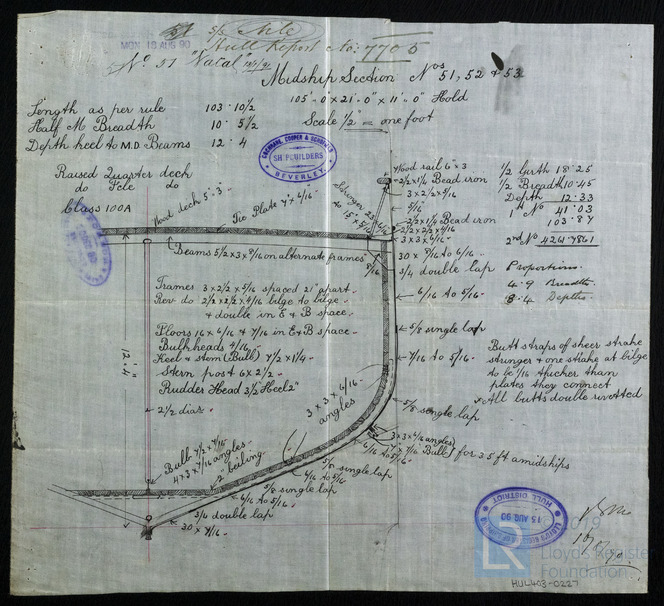 5/8
MON 18 AUG 90
Hull Report No: 7705
No. 51 "Natal"
Midship Section Nos 51, 52 & 53
105'·0" x 21'·0" x 11'·0" Hold
Scale 1/2" = one foot
Length as per rule 103·10 1/2
Half M Breadth 10·5 1/2
Depth keel to M.D Beams 12·4
Raised Quarter deck
do Fcle do
Class 100A
COCHRANE, COOPER & SCHOFIELD
SHIPBUILDERS
BEVERLEY.
Wood deck 5"·3"
Tie Plate 7" x 6/16
Stringer 23 x 6/16
to 15 x 5/16
Wood rail 6" x 3
2 1/2 x 1 1/4 Bead iron
3 x 2 1/2 x 5/16
5/16
2 1/2 x 1 1/4 Bead iron
2 1/2 x 2 1/2 x 4/16
3 x 3 x 6/16
30 x 8/16 to 6/16
3/4 double lap
6/16 to 5/16
5/8 single lap
7/16 to 5/16
5/8 single lap
1/2 Girth 18·25
1/2 Breadth 10·45
Depth 12·33
1st No 41·03
103·87
2nd No 4261·7861
Proportions.
4·9 Breadths
8·4 Depths.
Beams 5 1/2 x 3 x 6/16 on alternate frames
8/16
Frames 3 x 2 1/2 x 5/16 spaced 21" apart.
Rev do 2 1/2 x 2 1/2 x 4/16 bilge to bilge
& double in E & B space.
Floors 16 x 6/16 & 7/16 in E & B space
Bulkheads 4/16
Keel & stem (Bulb) 7 1/2 x 1 1/4
Stern post 6 x 2 1/2
Rudder Head 3 1/2" Heel 2"
12'·4"
2 1/2 diar
Butt straps of sheer strake
stringer & one strake at bilge
to be 1/16 thicker than
plates they connect
All butts double rivetted
3 x 3 x 6/16
angles
3 x 3 x 6/16 angles
7 x 7/16 Bulb
for 35 ft amidships
Bulb 7 1/2 x 7/16
4 x 3 x 7/16 angles
2" ceiling
6/16 to 5/16
5/8 single lap
6/16 to 5/16
5/8 single lap
6/16 to 5/16
3/4 double lap
30 x 7/16
LLOYD'S REGISTER OF SHIPPING
15 AUG 90
HULL DISTRICT
LR
2019
Lloyd's Register
Foundation
HUL403-0227